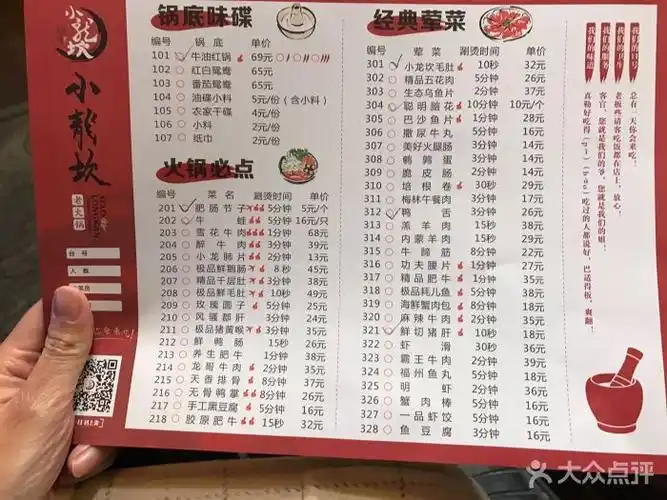 小龙坎
小龍坎
老火锅
台号
人数
锅底味碟
编号 锅底 单价
101 牛油红锅 69元
102 红白鸳鸯 65元
103 番茄鸳鸯 65元
104 油碟小料 5元/份（含小料）
105 农家干碟 4元/份
106 小料 2元/份
107 纸巾 2元/份
火锅必点
编号 菜名 涮烫时间 单价
201 肥肠节子 5分钟 5元/个
202 牛蛙 5分钟 16元/只
203 雪花牛肉 1分钟 68元
204 醉牛肉 3分钟 39元
205 小龙肺片 2分钟 13元
206 极品鲜鹅肠 8秒 45元
207 精品千层肚 3分钟 38元
208 极品鲜毛肚 10秒 49元
209 玫瑰圆子 5分钟 25元
210 风骚郡肝 3分钟 24元
211 极品猪黄喉 3分钟 35元
212 鲜鸭肠 15秒 26元
213 养生肥牛 1分钟 38元
214 龙哥牛肉 2分钟 35元
215 天香排骨 8分钟 37元
216 无骨鸭掌 8分钟 26元
217 手工黑豆腐 5分钟 16元
218 胶原肥牛 15秒 32元
经典荤菜
编号 荤菜 涮烫时间 单价
301 小龙坎毛肚 10秒 32元
302 精品五花肉 5分钟 26元
303 生态乌鱼片 2分钟 37元
304 聪明脑花 10分钟 10元/个
305 巴沙鱼片 1分钟 28元
306 撒尿牛丸 5分钟 18元
307 美好火腿肠 3分钟 14元
308 鹌鹑蛋 3分钟 14元
309 脆皮肠 2分钟 18元
310 培根卷 30秒 29元
311 梅林午餐肉 3分钟 17元
312 鸭舌 3分钟 26元
313 羔羊肉 15秒 39元
314 内蒙羊肉 15秒 29元
315 牛蹄筋 8分钟 22元
316 功夫腰片 1分钟 27元
317 精品肥牛 1分钟 35元
318 极品耗儿鱼 5分钟 38元
319 海鲜蟹肉包 8分钟 18元
320 麻辣牛肉 2分钟 35元
321 鲜切猪肝 10秒 18元
322 虾滑 30秒 36元
323 霸王牛肉 2分钟 39元
324 福州鱼丸 5分钟 18元
325 明虾 2分钟 36元
326 蟹肉棒 5分钟 16元
327 一品虾饺 5分钟 16元
328 鱼豆腐 3分钟 16元
我们的口号
我们的卫生
我们的服务
我们的味道
总有一天你会来吃。
老板些请客吃饭都在店上，放心。
客官，您就是我们的爷，您就是我们的姐。
真勒好吃得(pi)(bo)吃过的人都说好，巴适得板，爽翻。
大众点评